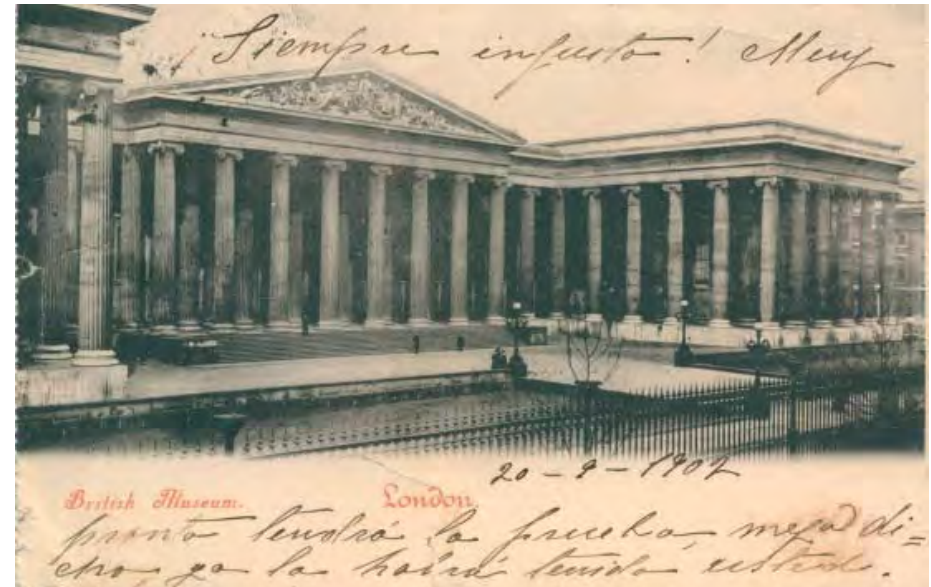 ¡Siempre injusto! Muy
20-9-1902
British Museum. London.
pronto tendrá la prueba, mejor di=
cho ya la habrá tenido usted.